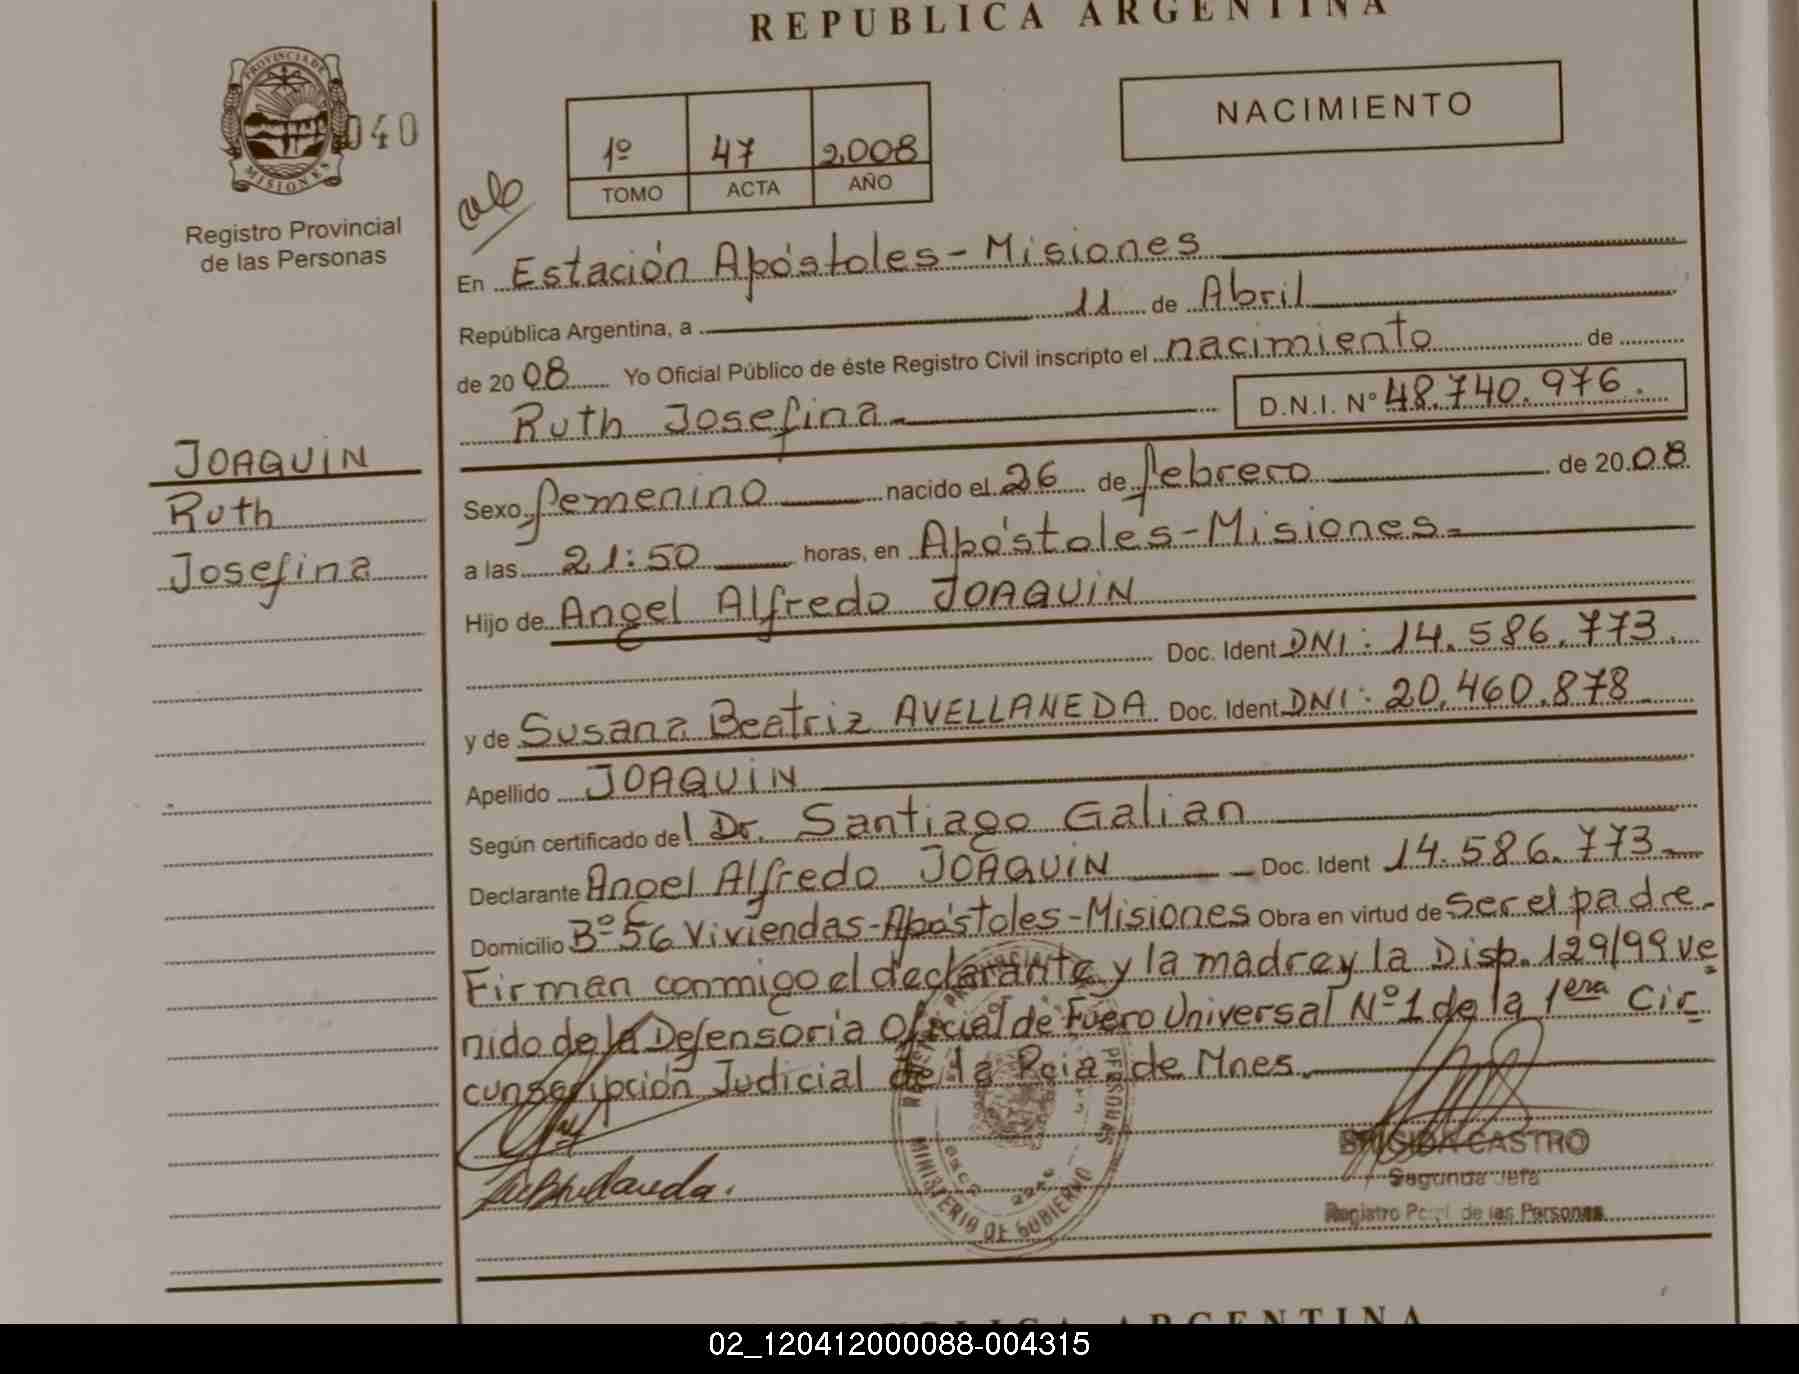 REPUBLICA ARGENTINA
PROVINCIA DE
MISIONES
040
Registro Provincial
de las Personas
NACIMIENTO
1º 47 2.008
TOMO ACTA AÑO
En Estación Apóstoles-Misiones
República Argentina, a 11 de Abril
de 20 08 Yo Oficial Público de éste Registro Civil inscripto el nacimiento de
Ruth Josefina D.N.I. Nº 48.740.976.
JOAQUIN
Ruth
Josefina
Sexo femenino nacido el 26 de febrero de 20 08
a las 21:50 horas, en Apóstoles-Misiones-
Hijo de Angel Alfredo JOAQUIN
Doc. Ident DNI: 14.586.773.
y de Susana Beatriz AVELLANEDA Doc. Ident DNI: 20.460.878
Apellido JOAQUIN
Según certificado de l Dr. Santiago Galian
Declarante Angel Alfredo JOAQUIN Doc. Ident 14.586.773
Domicilio Bº 56 Viviendas-Apóstoles-Misiones Obra en virtud de ser el padre.
Firman conmigo el declarante y la madre y la Disp. 129/99 ve
nido de la Defensoria Oficial de Fuero Universal Nº 1 de la 1era Cir
cunscripción Judicial de la Pcia. de Mnes.
MINISTERIO DE GOBIERNO
BRIGIDA CASTRO
Segunda Jefa
Registro Pcial. de las Personas
REPUBLICA ARGENTINA
02_120412000088-004315